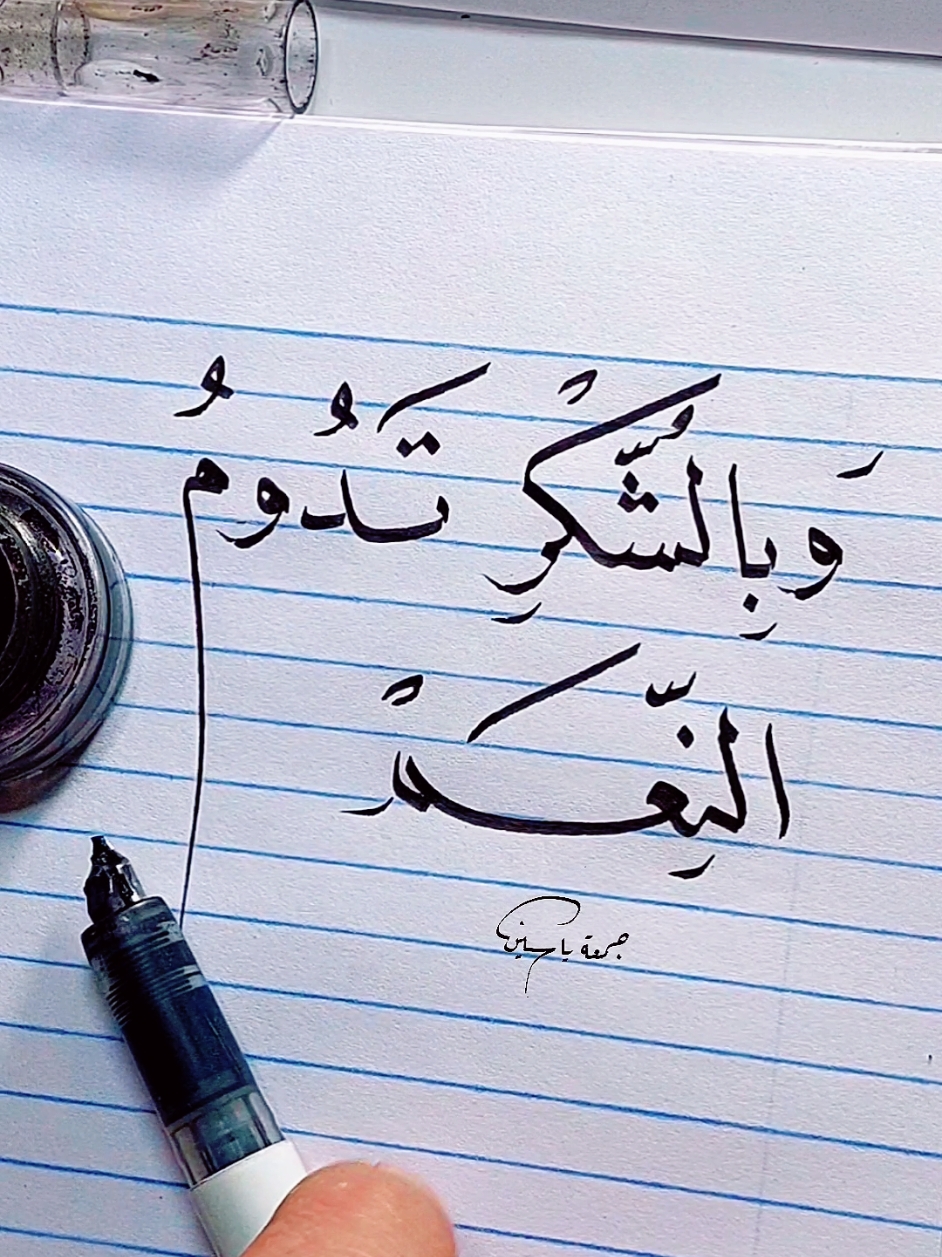 وَبِالشُّكْرِ تَدُومُ
النِّعَمْ
جمعة ياسين